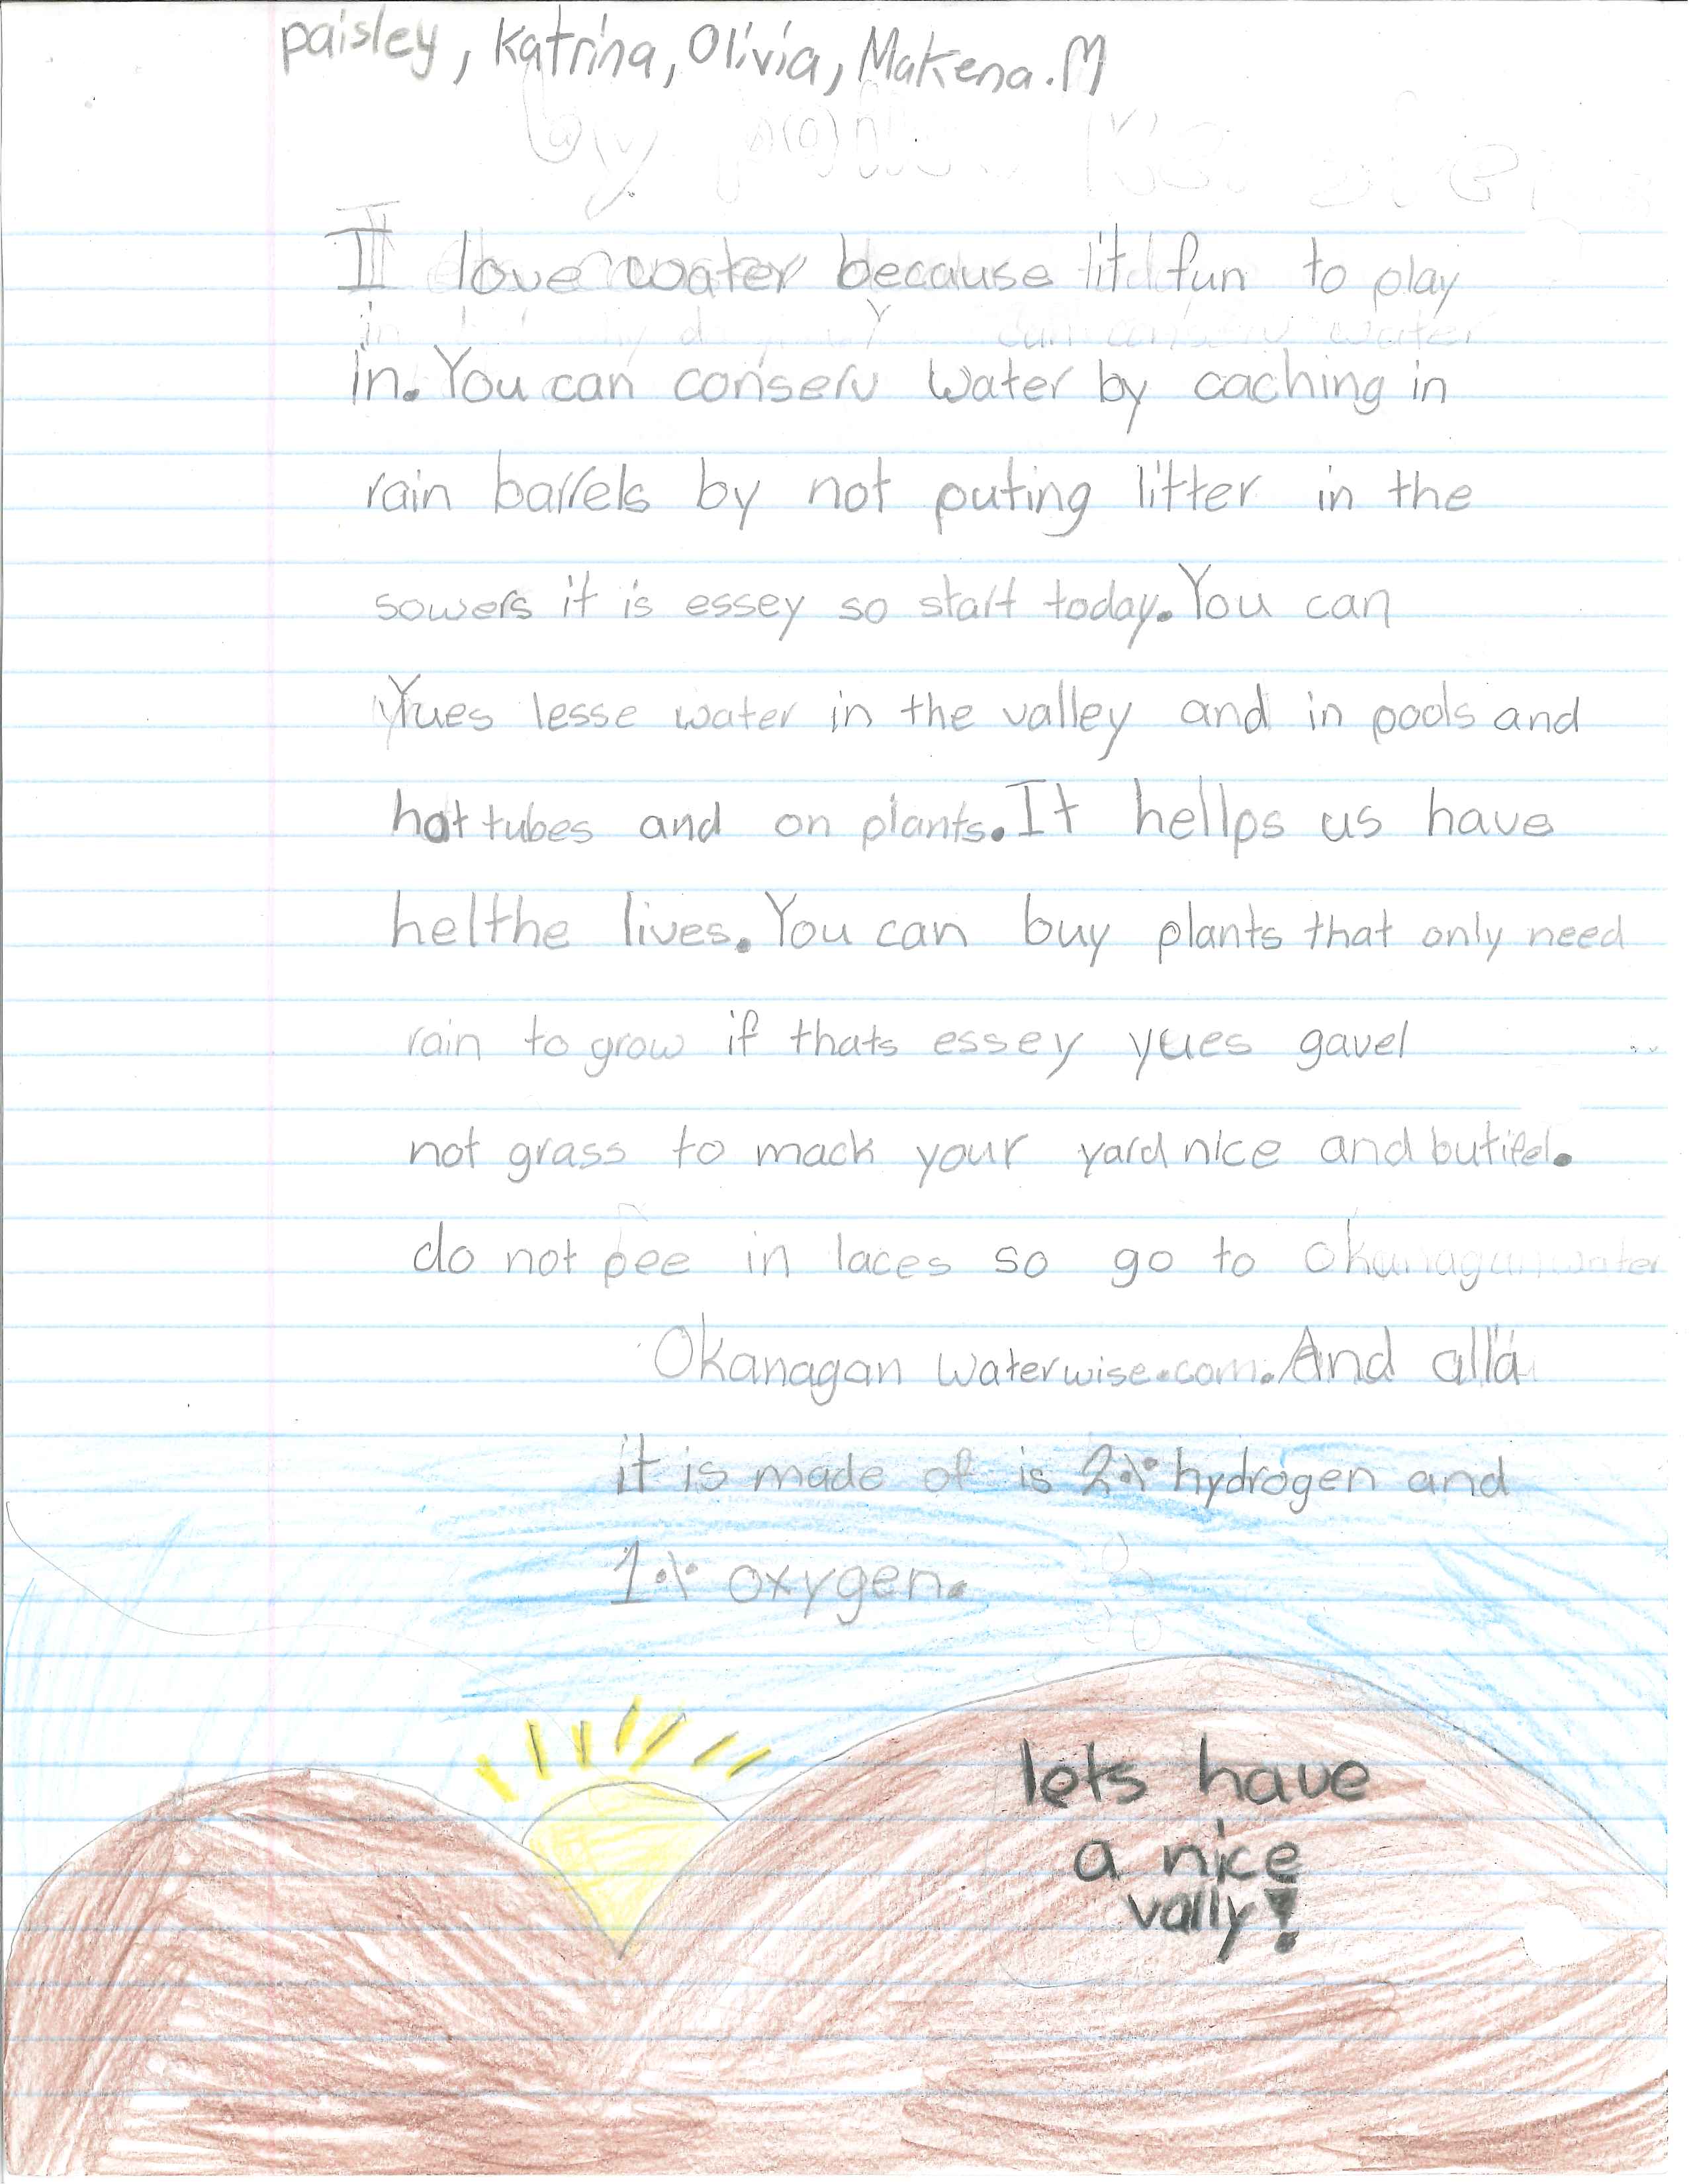 paisley, Katrina, Olivia, Makena.M
I love water because it fun to play
in. You can conserv water by caching in
rain barrels by not puting litter in the
sowers it is essey so start today. You can
Yues lesse water in the valley and in pools and
hot tubes and on plants. It hellps us have
helthe lives. You can buy plants that only need
rain to grow if thats essey yues gavel
not grass to mack your yard nice and butifel.
do not pee in laces so go to okanagan water
Okanagan waterwise.com. And alla
it is made of is 2% hydrogen and
1% oxygen.
lets have
a nice
vally!